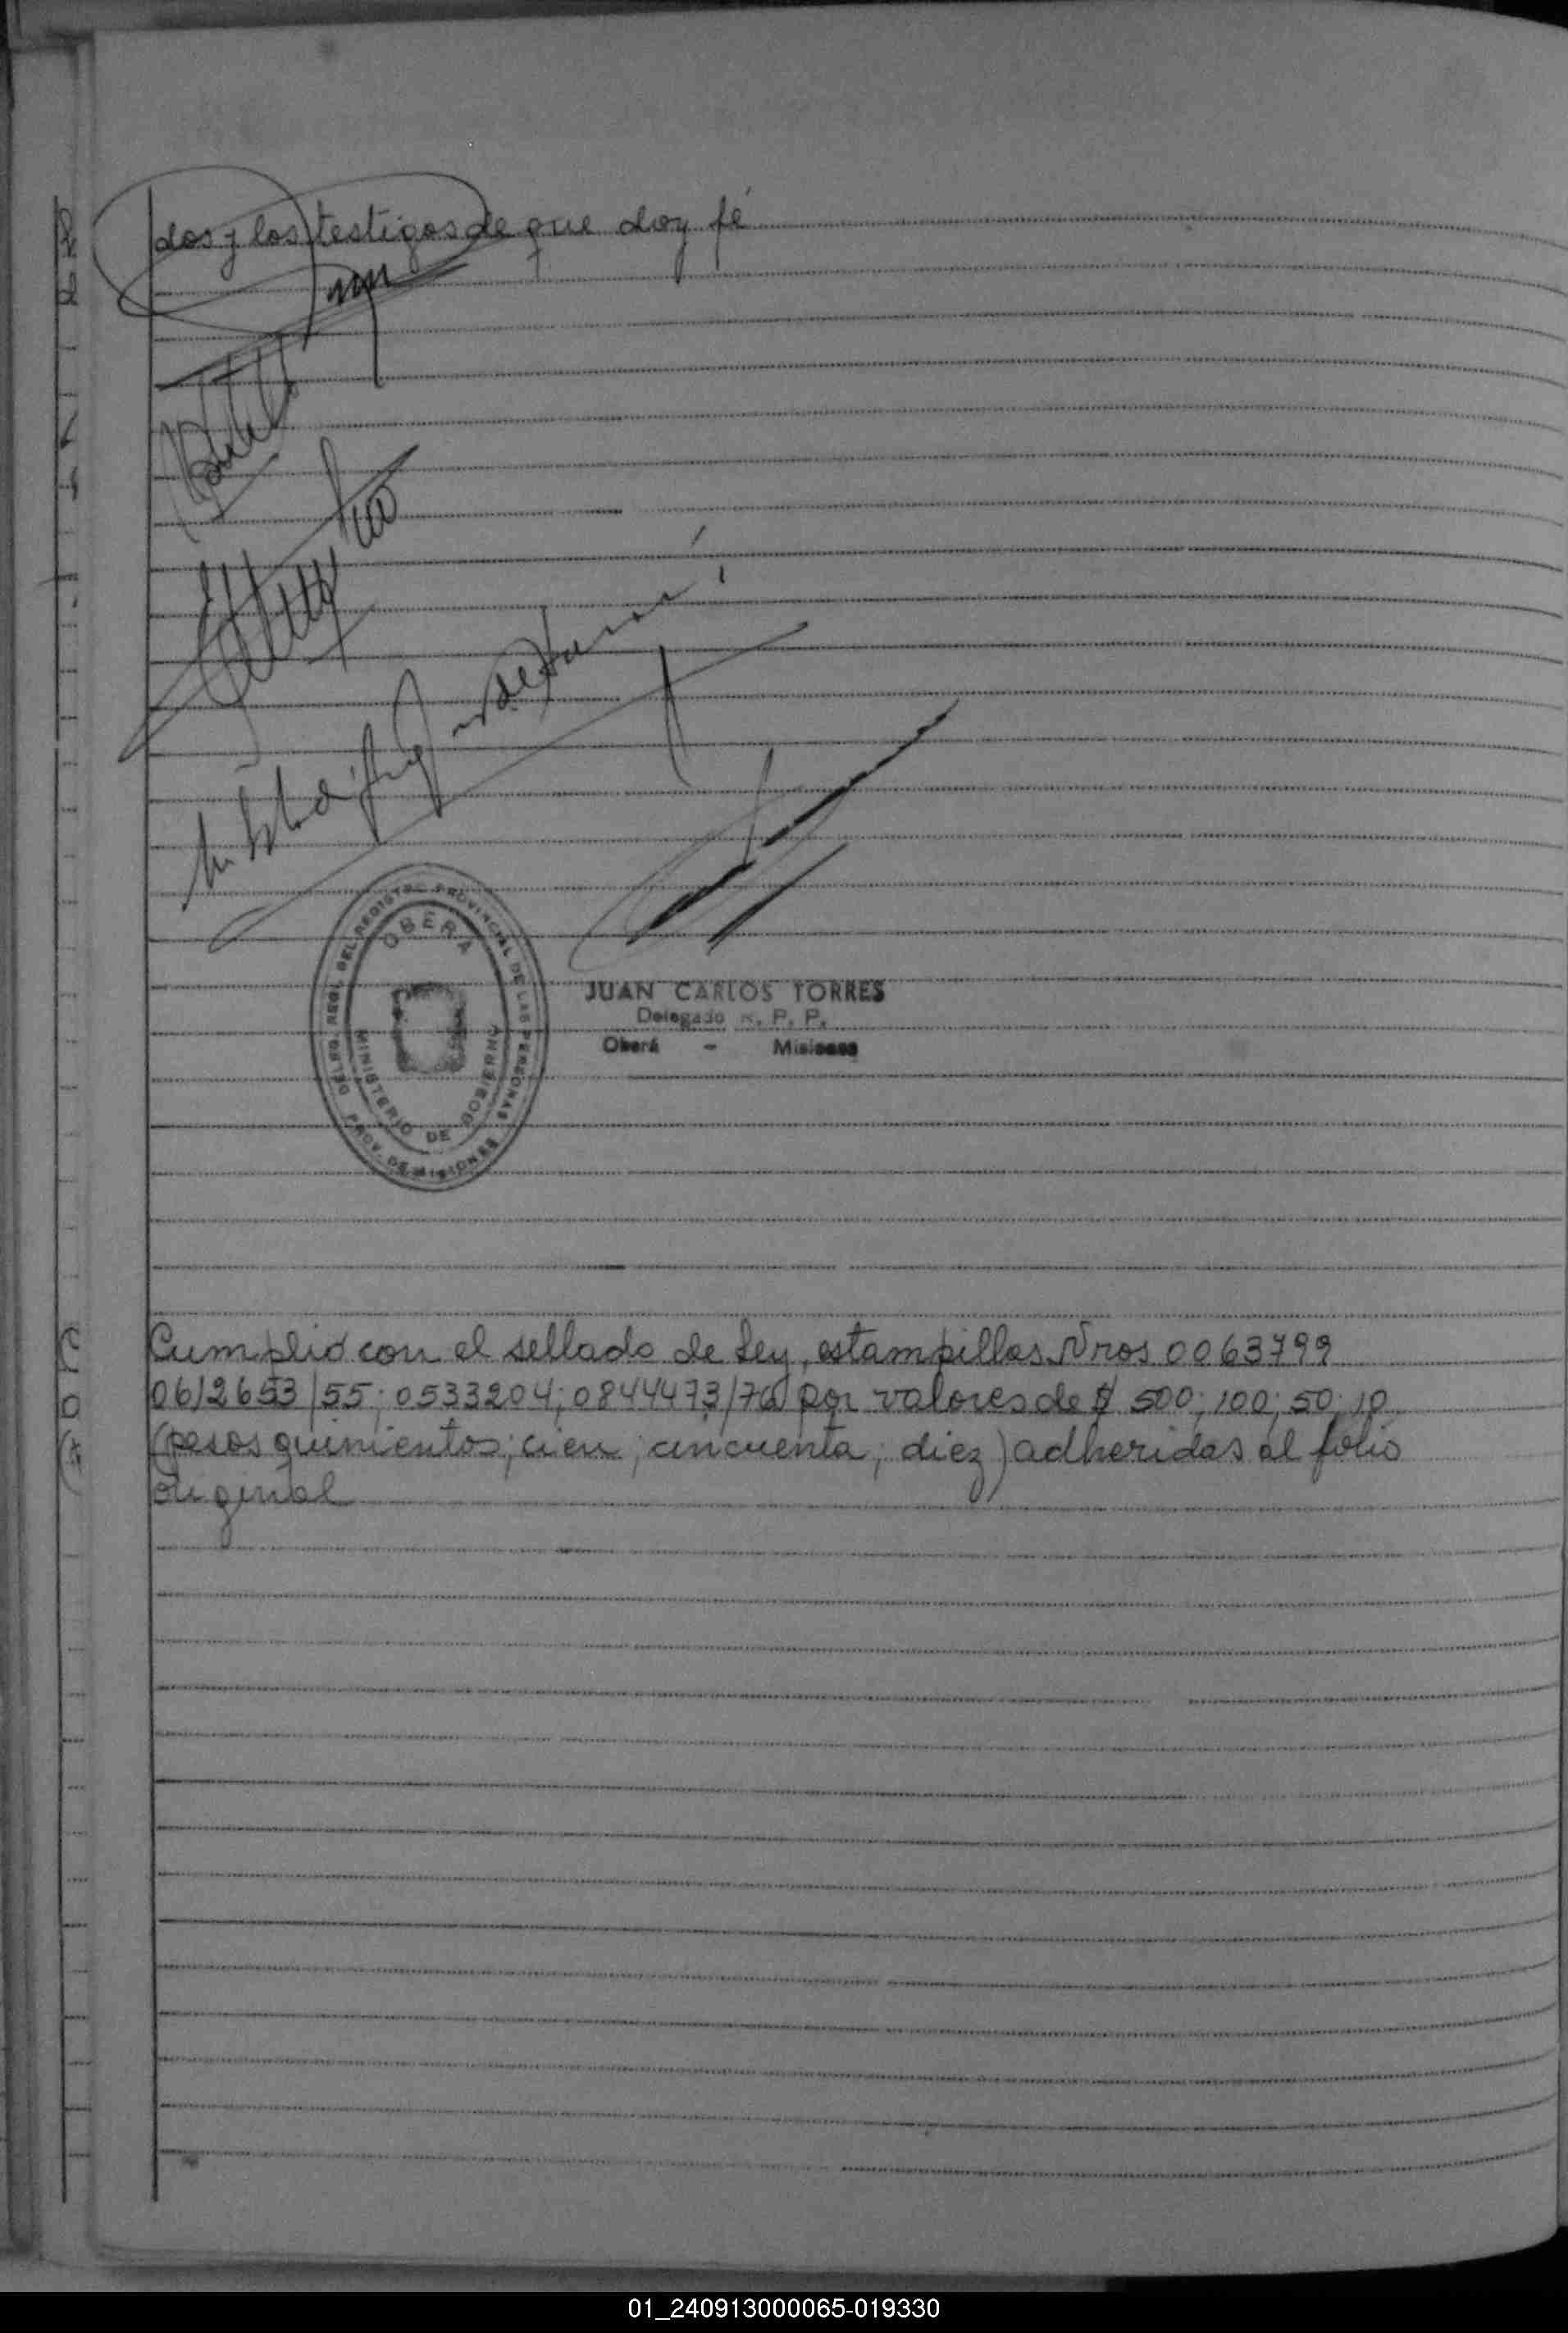 dos y los testigos de que doy fé
DELEG. REGI. DEL REGISTRO PROVINCIAL DE LAS PERSONAS
OBERA
MINISTERIO DE GOBIERNO
PROV. DE MISIONES
JUAN CARLOS TORRES
Delegado R. P. P.
Oberá - Misiones
Cumplió con el sellado de Ley, estampillas Nros 0063799
0612653/55; 0533204; 0844473/76 por valores de $ 500; 100; 50; 10
(pesos quinientos; cien; cincuenta; diez) adheridas al folio
original
01_240913000065-019330